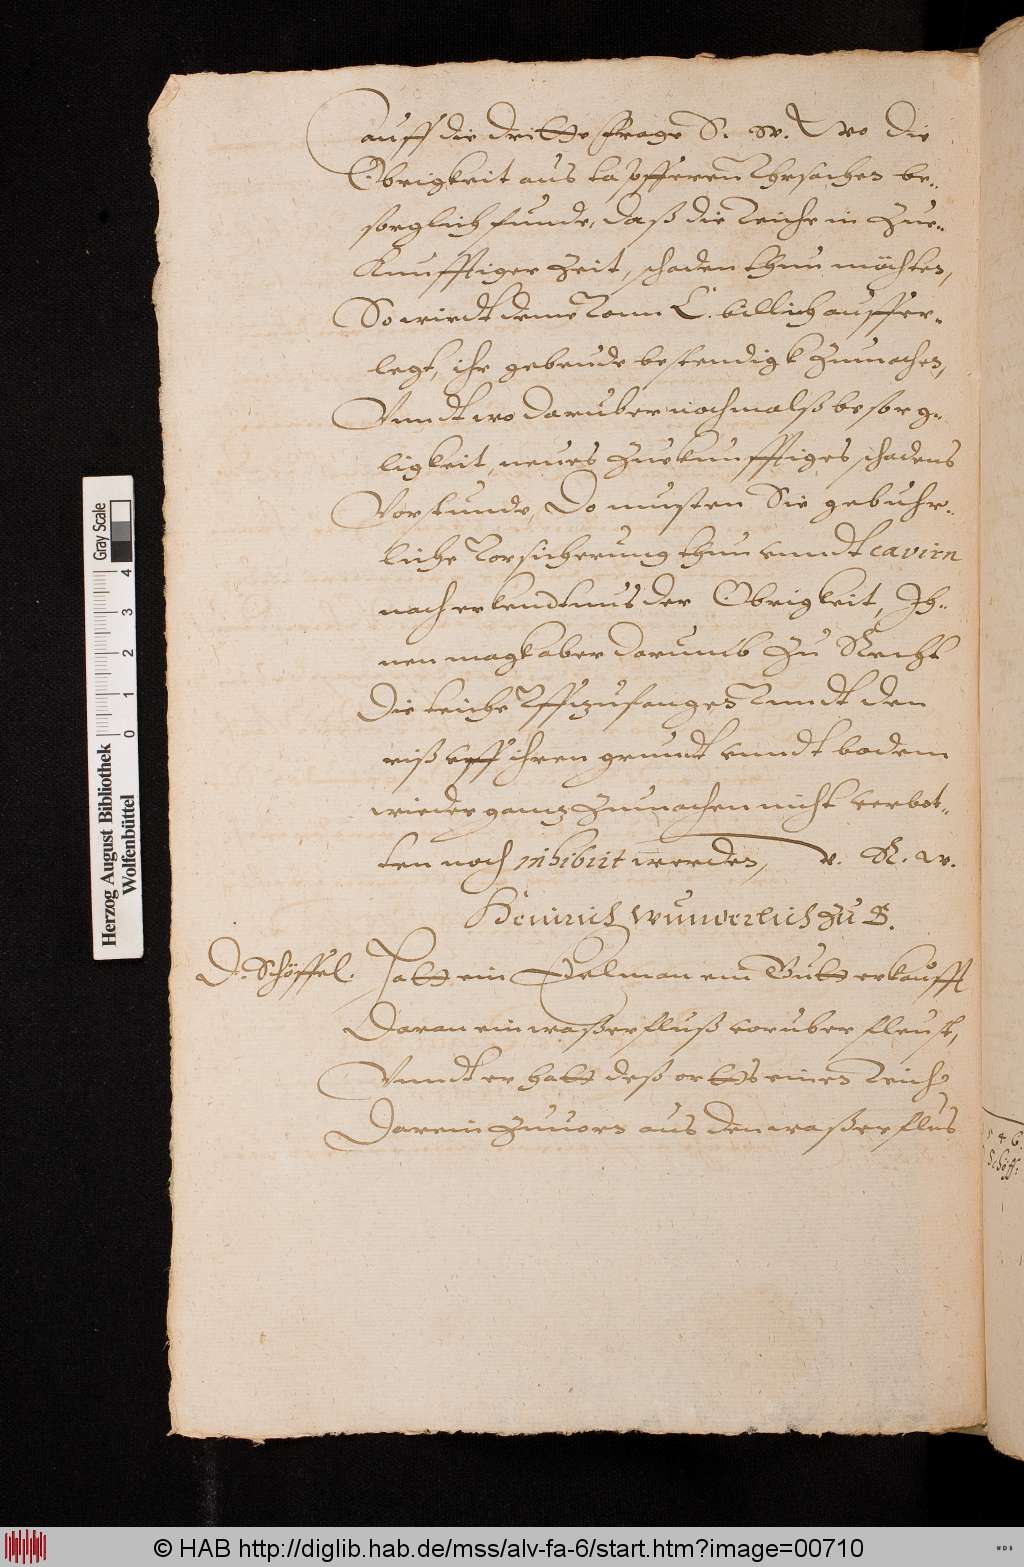 auff die dritte frage S. W. Wo die
Obrigkeit aus tapfferen Vhrsachen be„
sorglich funde, daß die Teiche in Zue„
Kunfftiger Zeit, schaden thun möchten,
So wirdt denen Vonn L. billich aufffer„
legt, ihr gebeude bestendigk Zumachen,
Vnndt wo daruber nochmalß besorg„
ligkeit, neues Zuekunfftiges schadens
Vorstunde, Do musten Sie gebuhr„
liche Vorsicherung thun vnndt cavirn
nach erkendtnus der Obrigkeit, Ih„
nen magk aber darumb Zu Recht
Die teiche Vffzufangen Vnndt den
riß vff ihren grundt vnndt bodem
wieder gantz Zumachen nicht verbot„
ten noch inhibirt werden, v. R. w.
Heinrich Wunderlich Zu S.
D. Schöffel. Hatt ein Edelman ein Gutt erkaufft
Daran ein waßerfluß voruber fleust,
Vnndt er hatt deß orts einen Teich,
Darein Zuuorn aus den waßerflus
546.
Schöff:
Herzog August Bibliothek
Wolfenbüttel
Gray Scale
0 1 2 3 4
© HAB http://diglib.hab.de/mss/alv-fa-6/start.htm?image=00710
WDB